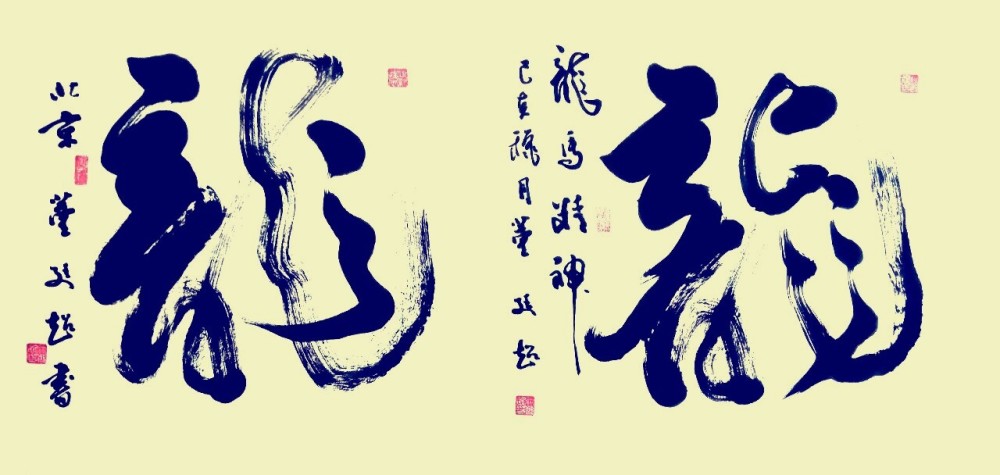 龍
北京 董 超 書
龍
龍馬精神
己亥 月 董 超